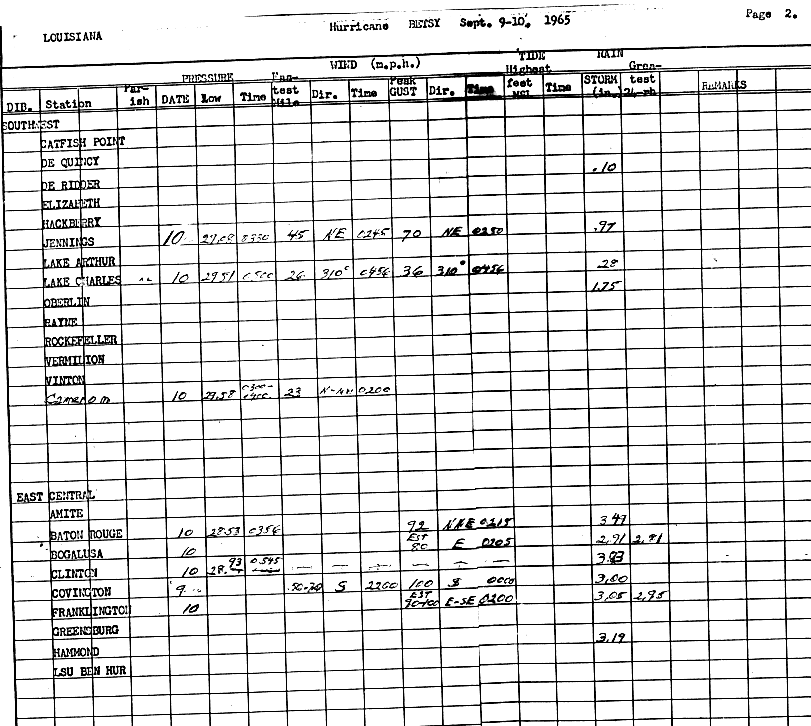 Page 2.
LOUISIANA Hurricane BETSY Sept. 9-10, 1965
PRESSURE WIND (m.p.h.) TIDE RAIN
DIB. Station Par-ish DATE Low Time Fas-test Mile Dir. Time Peak GUST Dir. Time Highest feet MSL Time STORM (in.) Grea-test 24-rh REMARKS
SOUTHWEST
CATFISH POINT
DE QUINCY .10
DE RIDDER
ELIZABETH
HACKBERRY .97
JENNINGS 10 0330 45 NE 0245 70 NE 0250
LAKE ARTHUR .28
LAKE CHARLES 10 29.51 0500 26 310° 0456 36 310° 0456
OBERLIN 1.75
RAYNE
ROCKEFELLER
VERMILION
VINTON
Cameron 10 29.58 0300- 0400 23 0200
EAST CENTRAL
AMITE 3.47
BATON ROUGE 10 28.53 0356 92 NNE 0215
BOGALUSA 10 EST 80 E 0205 2.91 2.81
CLINTON 10 28.93 0545 — — — — — — 3.83
COVINGTON 9 S 2200 100 S 0000 3.00
FRANKLINGTON 10 EST 90-100 E-SE 0200 3.05 2.95
GREENSBURG
HAMMOND 3.19
LSU BEN HUR